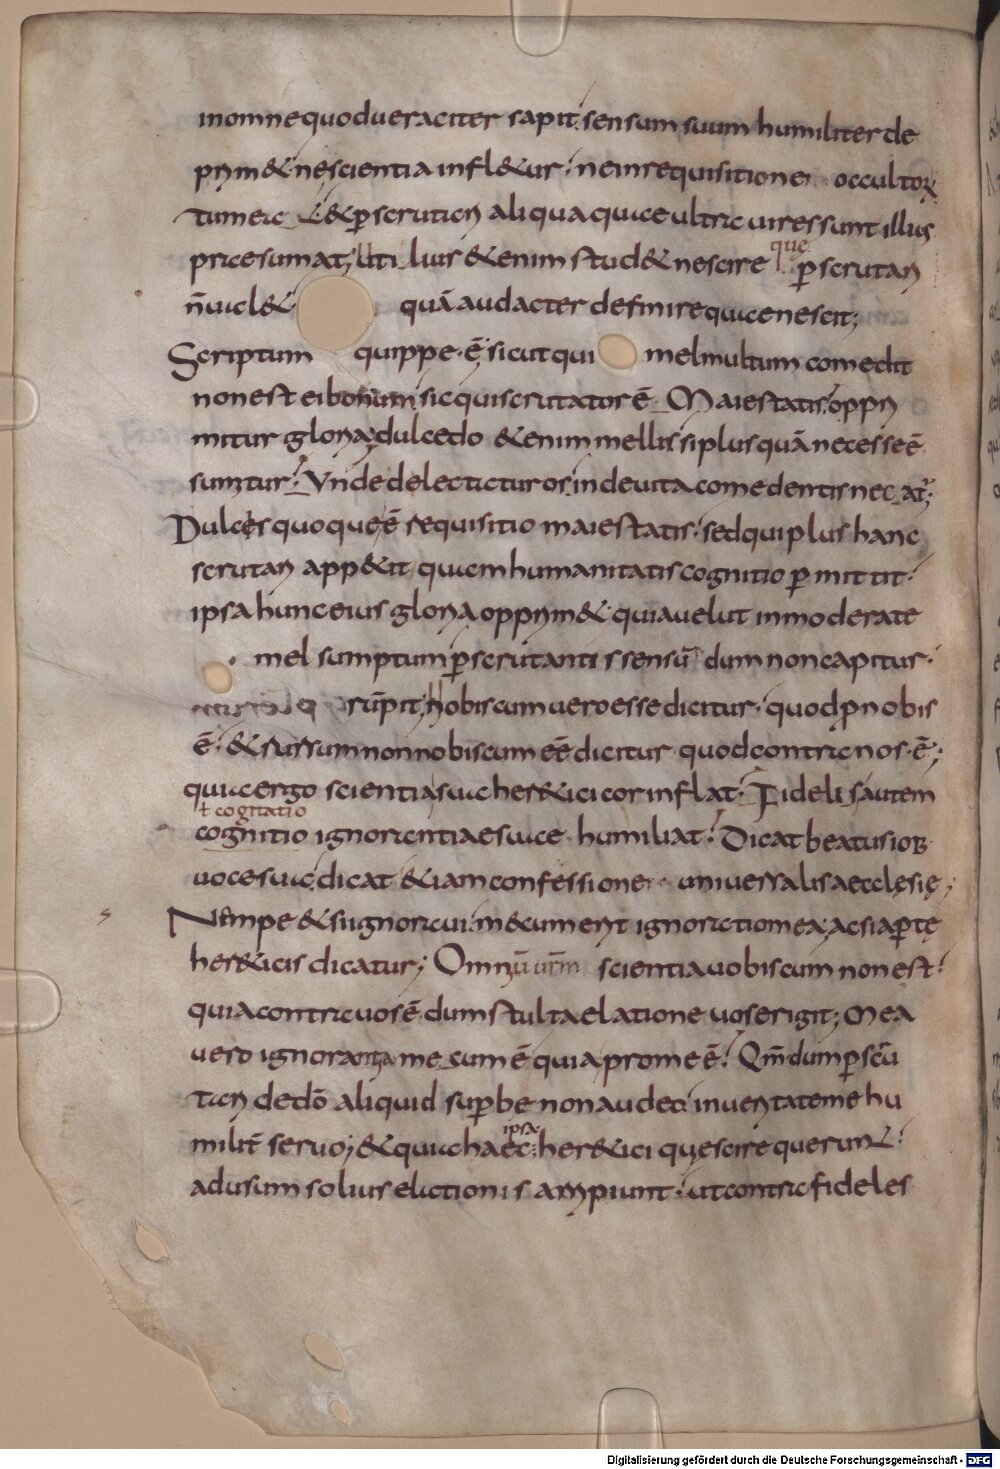 in omne quod ueraciter sapit sensum suum humiliter de
prim& ne scientia infl&ur; ne in requisitione occultorũ
tumeat &perscrutari aliqua quae ultra uires sunt illius
praesumat; Utilius &enim stud& nescire que perscrutari
ñ ual& quã audacter definire quae nescit;
Scriptum quippe ẽ sicut qui mel multum comedit
non est ei bonum sic qui scrutator ẽ Maiestatis oppri
mitur gloria; dulcedo &enim mellis si plus quã necesse ẽ
sumitur; Unde delectatur os inde uita comedentis necat̃;
Dulcis quoque ẽ requisitio maiestatis. sed qui plus hanc
scrutari app&it quam humanitatis cognitio permittit;
ipsa hunc eius gloria opprim& quia uelut inmoderate
mel sumptum perscrutantis sensũ dum non capitur.
rũpit; Nobiscum uero esse dicitur. quod pro nobis
ẽ. & rursum non nobiscum eẽ dicitur quod contra nos ẽ;
quia ergo scientia sua her&ici cor inflat. Fideli s autem
ł cogitatio
cognitio ignorantiae suae humiliat; Dicat beatus iob
uoce sua. dicat &iam confessione uniuersalis aecclęsię;
Nempe &si ignoraui. mecum erit ignorantia mea; ac si apertę
her&icis dicatur; Omnis ur̃m scientia uobiscum non est;
quia contra uos ẽ dum stulta elatione uos erigit; Mea
uero ignorantia mecum ẽ quia pro me ẽ; Qm̃ dum perscru
tari de dõ aliquid superbe non audeo in ueritate me hu
milit̃ seruo; & quia haec ipsa her&ici quę scire querunt;
ad usum solius elationis arripiunt; ut contra fideles
Digitalisierung gefördert durch die Deutsche Forschungsgemeinschaft - DFG